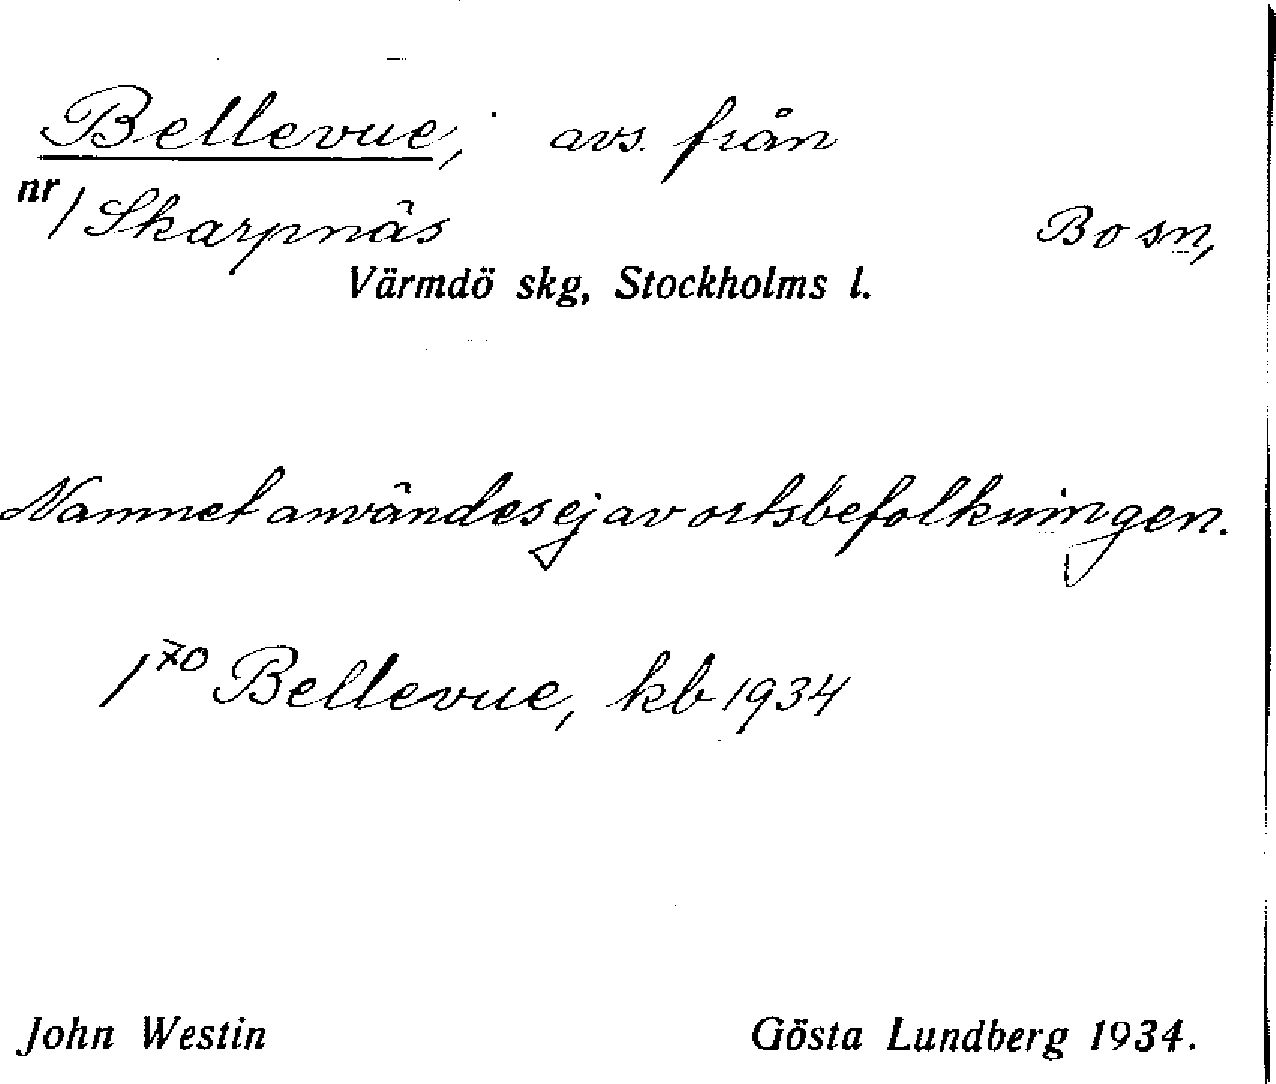 Bellevue, avs. från
nr 1 Skarpnäs Bo sn,
Värmdö skg, Stockholms l.
Namnet användes ej av ortsbefolkningen.
1⁷⁰ Bellevue, kb 1934
John Westin Gösta Lundberg 1934.